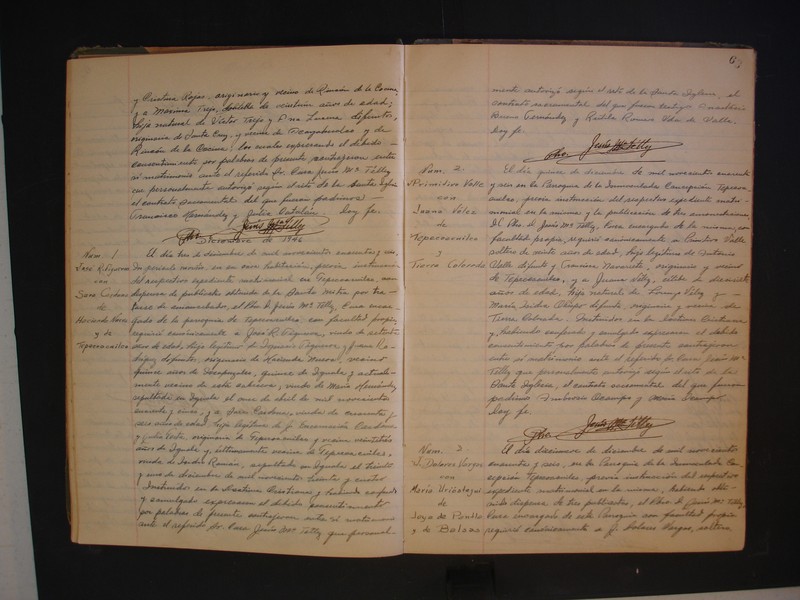 y Cristina Rojas, originario y vecino de Rincón de la Cocina
y a Maxima Trejo, célibe de veintiun años de edad;
hija natural de Victor Trejo y Ana Luisa difuntos,
originaria de Santa Cruz, y vecina de y de
Rincón de la Cocina: los cuales expresando el debido
consentimiento por palabras de presente contrajeron entre
sí matrimonio ante el referido Sr. Cura Jesús Ma. Télly
que personalmente autorizó según el rito de la Santa Iglesia
el contrato sacramental del que fueron padrinos
Francisco Hernández y Julia Catalán. Doy fe.
Pbro. Jesús Ma. Télly
Diciembre de 1946
Núm. 1
José R. Figueroa
con
Sara Cardona
Hacienda Nueva
y de
Tepecoacuilco
A día tres de diciembre de mil novecientos cuarenta y seis,
previa instrucción
del respectivo expediente matrimonial en Tepecoacuilco con
dispensa de publicatas obtenida de la Santa Mitra por tra-
tarse de amancebados, el Pbro. D. Jesús Ma. Télly, Cura encar-
gado de la parroquia de Tepecoacuilco, con facultad propia,
requirió canónicamente a José R. Figueroa, viudo de setenta
años de edad, hijo legítimo de Domingo Figueroa y Juana
difuntos, originario de Hacienda Nueva, vecino
quince años de quince de Iguala y actual-
mente vecino de esta cabecera, viudo de María Hernández
sepultada en Iguala el once de abril de mil novecientos
cuarenta y cinco, y a Sara Cardona, viuda de cuarenta y
seis años de edad hija legítima de J. Encarnación Cardona
y originaria de Tepecoacuilco y vecina veintitrés
años de Iguala y últimamente vecina de Tepecoacuilco,
viuda de Isidro Román, sepultado en Iguala el treinta
y uno de diciembre de mil novecientos treinta y cuatro
Instruidos en la Doctrina Cristiana y habiendo confesado
y comulgado expresaron el debido consentimiento
por palabras de presente contrajeron entre sí matrimonio
ante el referido Sr. Cura Jesús Ma. Télly que personal-
mente autorizó según el rito de la Santa Iglesia, el
contrato sacramental del que fueron testigos
Bruno Fernández y Rutila Román Vda de Valle.
Doy fe.
Pbro. Jesús Ma. Télly
Núm. 2.
Primitivo Valle
con
Juana Vélez
de
Tepecoacuilco
y
Tierra Colorada
El día quince de diciembre de mil novecientos cuarenta
y seis en la Parroquia de la Inmaculada Concepción Tepecoa-
cuilco, previa instrucción del respectivo expediente matri-
monial en la misma y la publicación de tres amonestaciones,
El Pbro. D. Jesús Ma. Télly, Cura encargado de la misma, con
facultad propia, requirió canónicamente a Primitivo Valle
soltero de veinte años de edad, hijo legítimo de Antonio
Valle difunto y Francisca Navarrete, originario y vecino
de Tepecoacuilco, y a Juana Vélez, célibe de dieciseis
años de edad, hija natural de Vélez y
María Isidra difunta, originaria y vecina de
Tierra Colorada. Instruidos en la Doctrina Cristiana
y habiendo confesado y comulgado expresaron el debido
consentimiento por palabras de presente contrajeron
entre sí matrimonio ante el referido Sr. Cura Jesús Ma.
Télly que personalmente autorizó según el rito de la
Santa Iglesia, el contrato sacramental del que fueron
padrinos Ambrosio Ocampo y María Ocampo.
Doy fe.
Pbro. Jesús Ma. Télly
Núm. 3
J. Dolores Vargas
con
María Urióstegui
de
Joya de Pantla
y de Balsas
A día diecinueve de diciembre de mil novecientos
cuarenta y seis, en la Parroquia de la Inmaculada Con-
cepción Tepecoacuilco, previa instrucción del respectivo
expediente matrimonial en la misma, habiendo obte-
nido dispensa de tres publicatas, el Pbro. D. Jesús Ma. Télly
Cura encargado de esta Parroquia con facultad propia
requirió canónicamente a J. Dolores Vargas, soltero